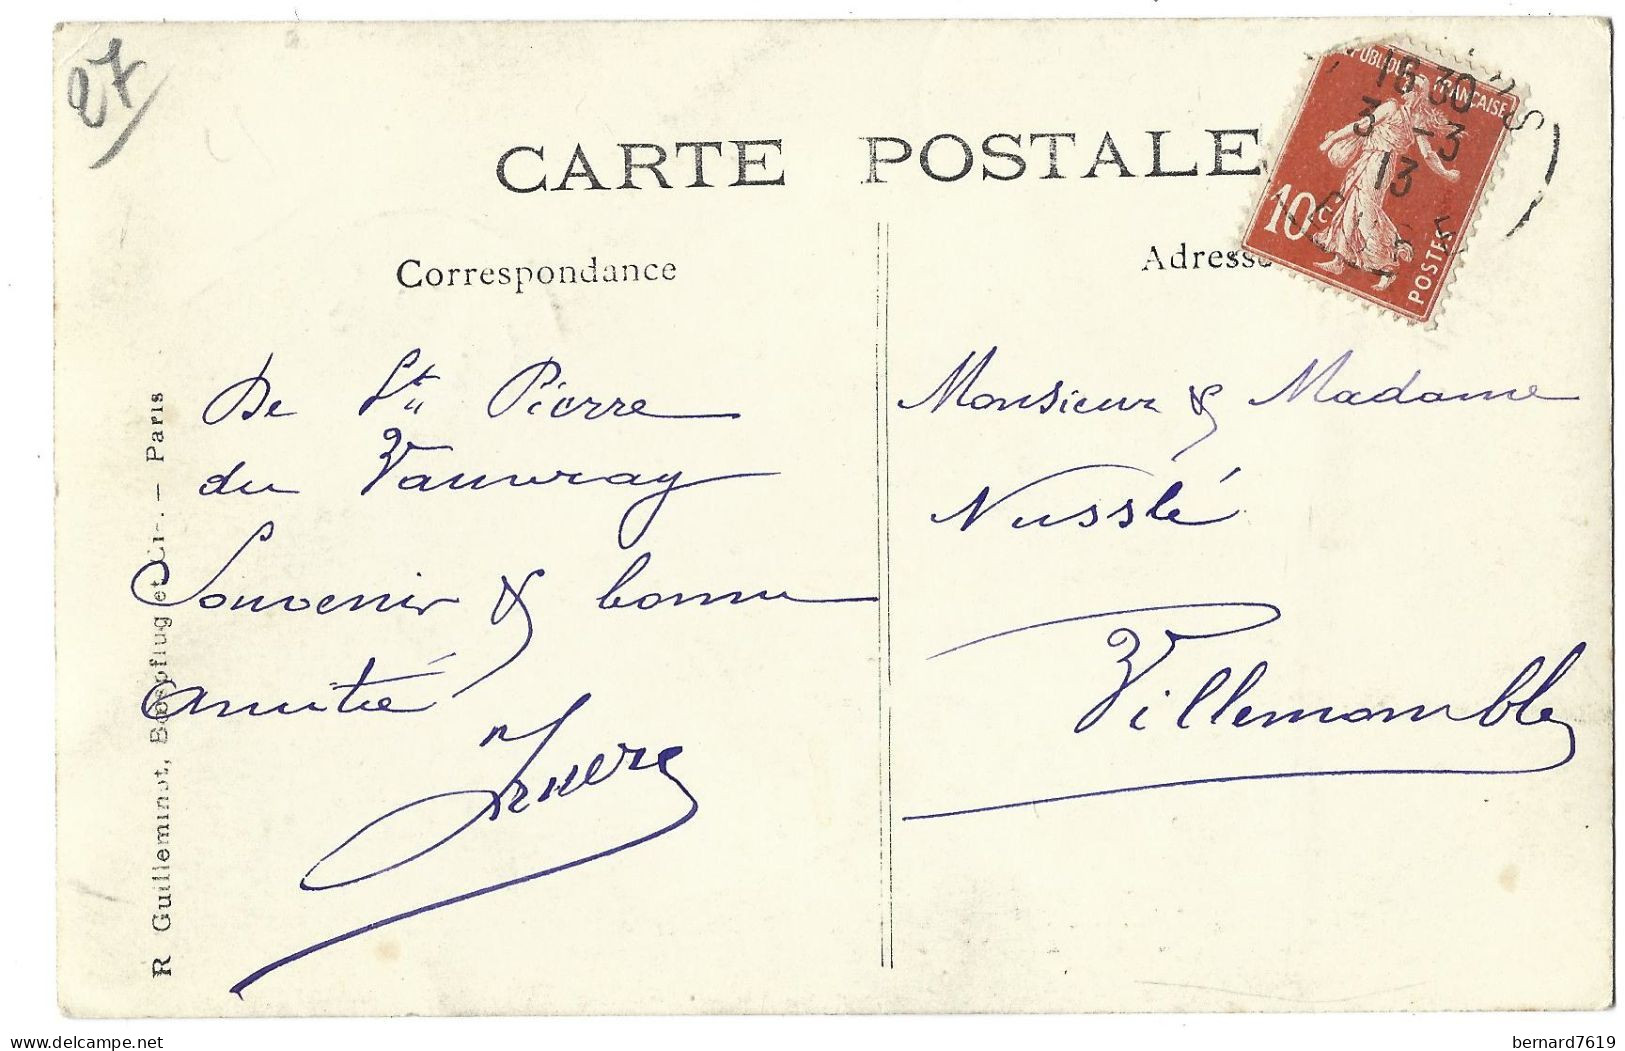 27
CARTE POSTALE
RÉPUBLIQUE FRANÇAISE
16 30
3 - 3
13
10c
POSTES
Correspondance
Adresse
De St Pierre
du Vauvray
Souvenir & bonne
amitié
Monsieur & Madame
Nusslé
Villemomble
R Guilleminot, Bœspflug et Cie. - Paris
bernard7619
delcampe.net